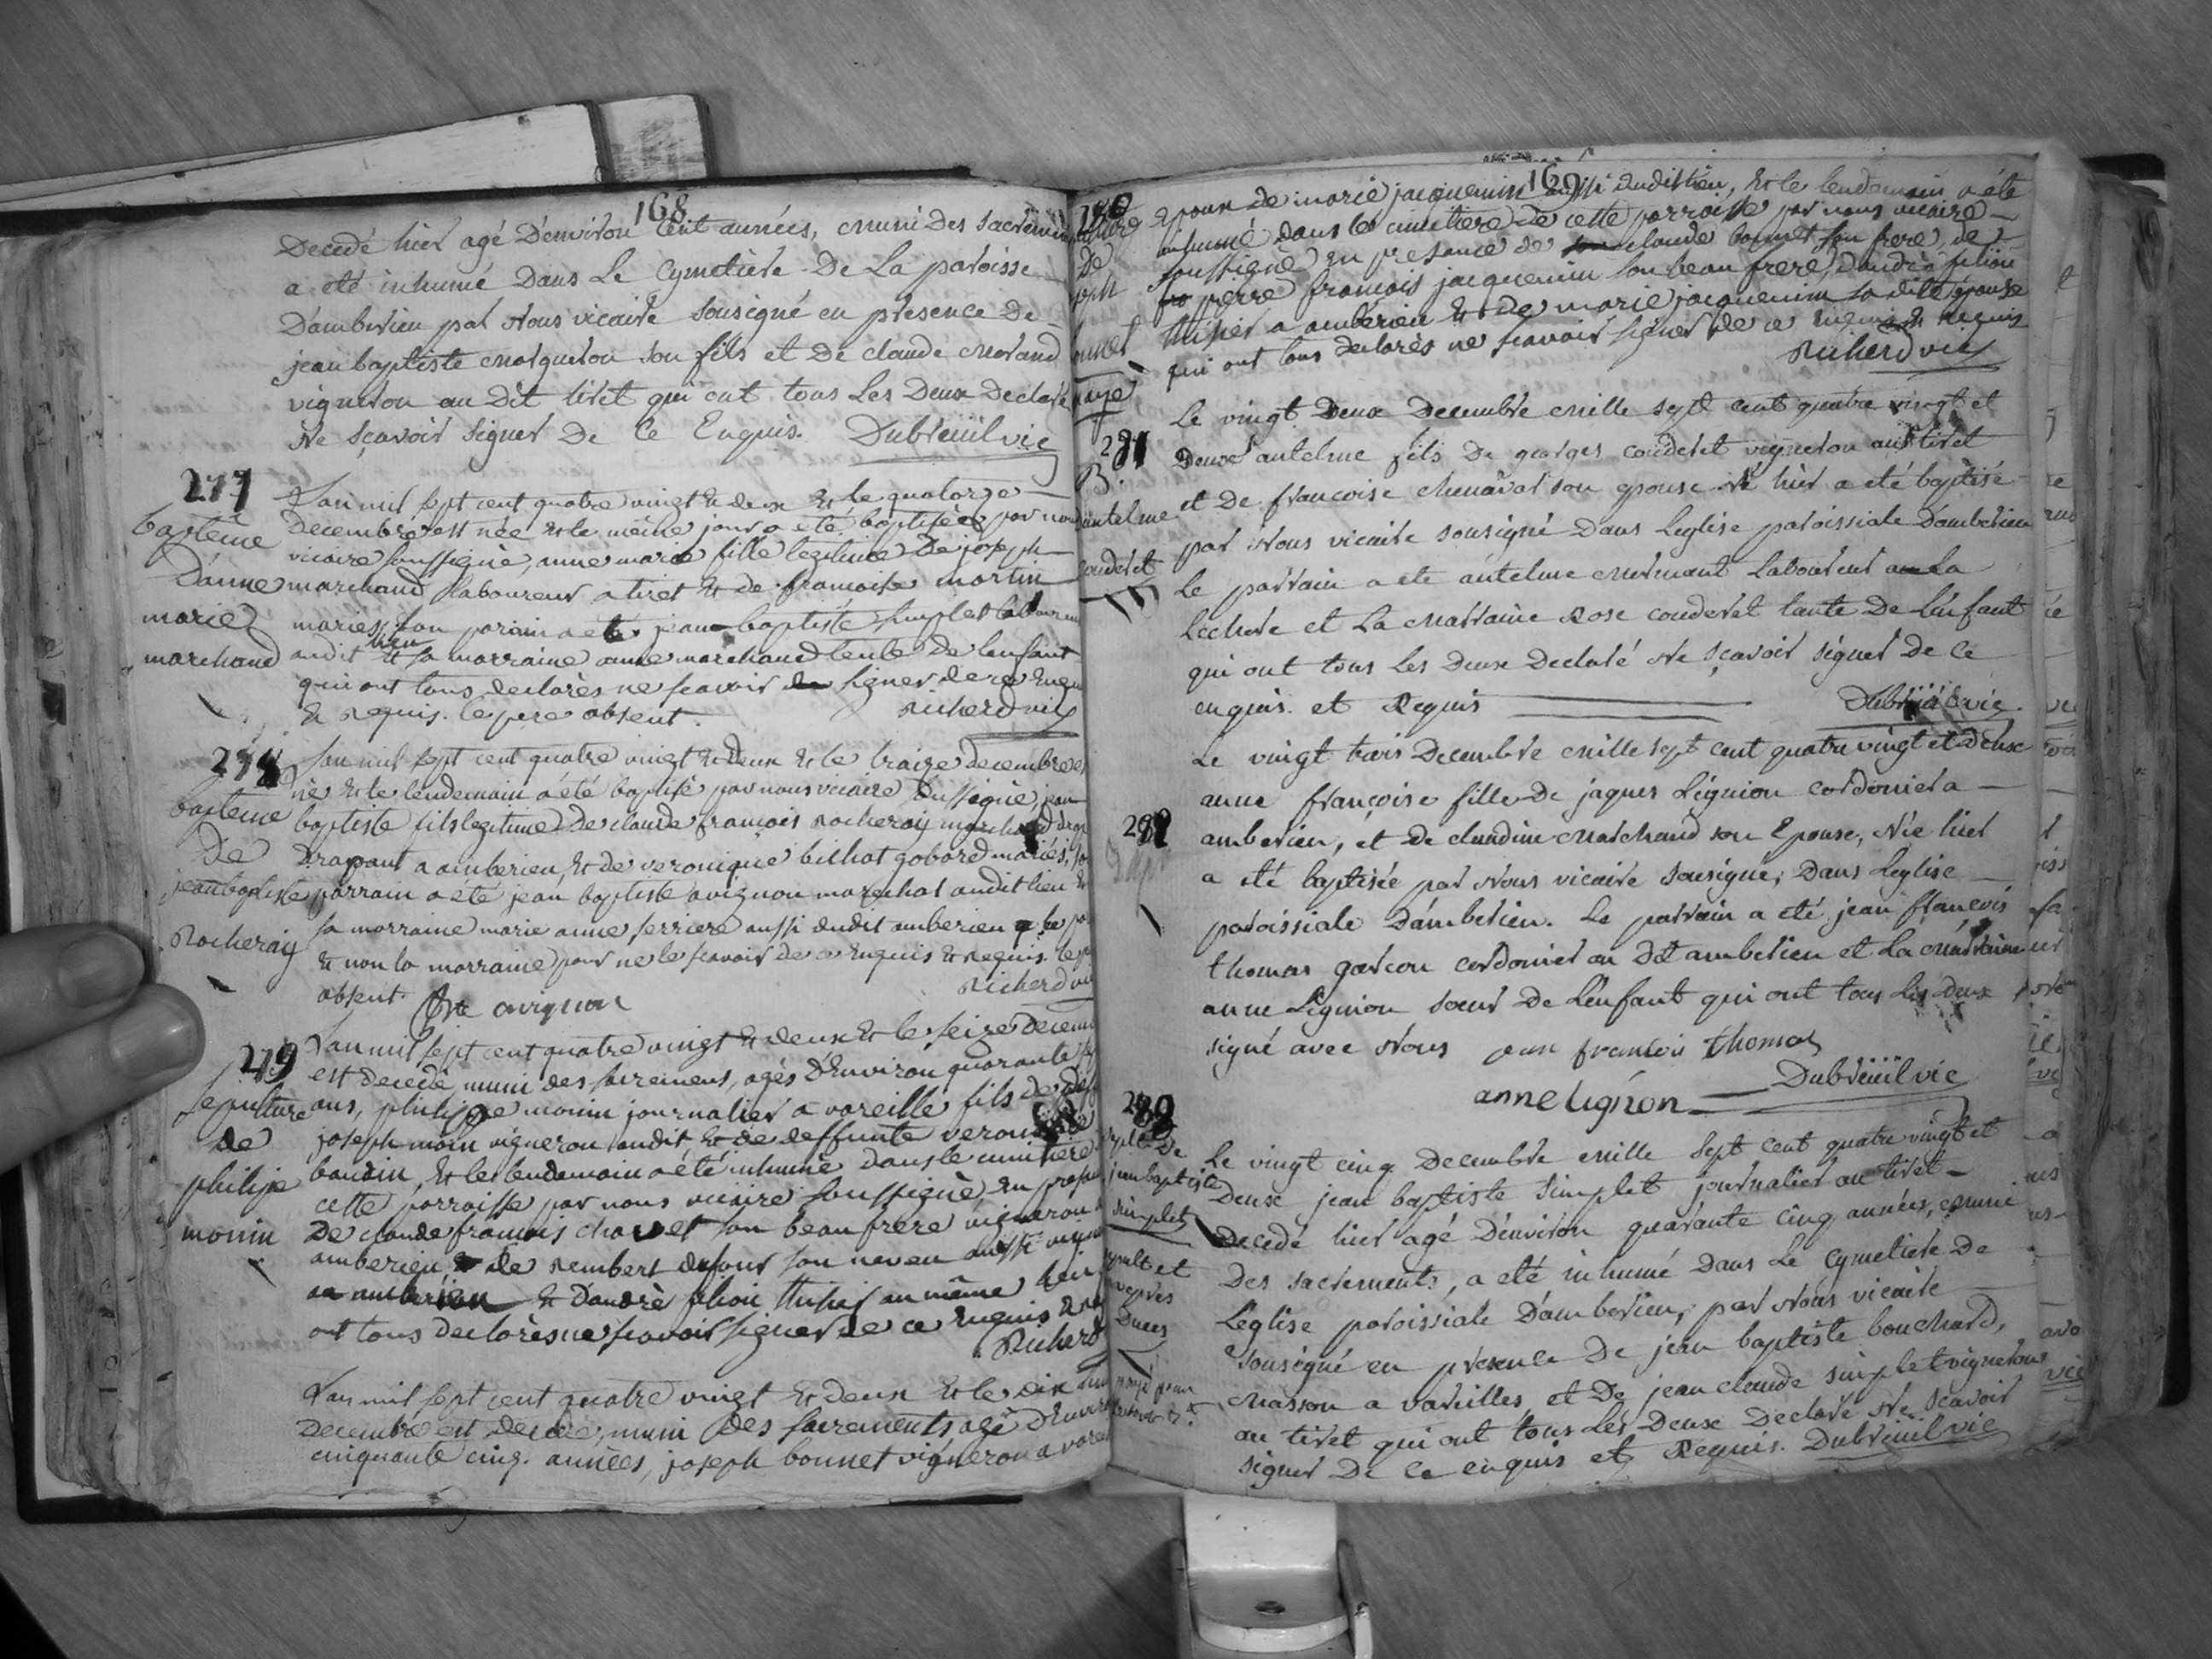 168
Decedé hier agé D'environ Cent années, muni Des Sacremens
a eté inhumé Dans Le Cymetiere De La paroisse
D'amberieu par Nous vicaire sousigné en presence De
jean baptiste morgueron son fils et De claude morand
vigneron au Dit tiret qui ont tous Les Deux Declaré
Ne sçavoir signer De Ce Enquis. Dubreüil vic
277
baptême
D'anne
marie
marchand
L'an mil sept cent quatre vingt & deux & le quatorze
Decembre est née & le même jour a été baptisée par nous
vicaire soussigné, anne marie fille legitime De joseph
marchand laboureur a tiret & de francoise martin
mariés, son parain a eté jean baptiste simplet laboureur
audit lieu & sa marraine anne marchand tente de lenfant
qui ont tous declarés ne scavoir signer de ce Enquis
& Requis. le pere absent. Richerd vic
278
bapteme
De
jean baptiste
Rocheray
L'an mil sept cent quatre vingt & deux & le traize decembre est
né & le lendemain a été baptisé par nous vicaire soussigné, jean
baptiste fils legitime De claude francois Rocheray marchand
Drapant a amberieu & de veronique bilhat gobard mariés, son
parrain a été jean baptiste avignon marechal audit lieu &
sa marraine marie anne ferriere aussi dudit amberieu
& non la marraine pour ne le scavoir de ce Enquis & Requis. le pere
absent. Bte avignon Richerd vic
279
sepulture
de
philipe
monin
L'an mil sept cent quatre vingt & deux & le seize Decembre
est decedé muni des sacremens, agés D'Environ quarante
ans, philipe monin journalier a vareille fils de
joseph monin vigneron audit, & de deffunte veronique
baudin, & le lendemain a été inhumé dans le cimitiere
cette parroisse par nous vicaire soussigné En presence
De claude francois chavet son beau frere vigneron
amberieu, & de Rembert dufour son neveu aussi
a amberieu & D'andrè filion thisier au même lieu
ont tous declarés ne scavoir signer de ce Enquis &
Richerd
L'an mil sept cent quatre vingt & deux & le dix
Decembre est decedé, muni Des sacrements agé D'Environ
cinquante cinq. années, joseph bonnet vigneron a
169
epoux de marie jacquemin aussi dudit lieu, & le lendemain a été
inhumé dans le cimitiere de cette parroisse par nous vicaire
soussigné En presance de claude bonnet son frere, de
pierre francois jacquemin son beau frere, D'andrè filion
thisier a amberieu & de marie jacquemin sa dite épouse
qui ont tous declarés ne scavoir signer de ce Enquis & Requis
Richerd vic
281
B.
D'antelme
Couderet
Le vingt Deux Decembre mille sept cent quatre vingt et
Deux antelme fils De georges Couderet vigneron au tiret
et De francoise chenavat son epouse né hier a eté baptisé
par Nous vicaire sousigné Dans Leglise paroissiale D'amberieu
Le parrain a eté antelme mermant Laboureur a La
Lechere et La marraine Rose couderet tante De L'enfant
qui ont tous Les Deux Declaré Ne sçavoir signer De Ce
enquis. et Requis Dubreüil vic.
282
Le vingt trois Decembre mille sept cent quatre vingt et Deux
anne françoise fille De jaques Lignion cordonier a
amberieu, et De claudine marchand son Epouse, Née hier
a eté baptisée par Nous vicaire sousigné, Dans Leglise
paroissiale D'amberieu. Le parrain a eté jean francois
thomas garcon cordonier au Dit amberieu et La marraine
anne Lignion soeur De L'enfant qui ont tous Les deux
signé avec Nous jean francois thomas
Dubreüil vic
anne Lignon
sepult De
jean baptiste
simplet
Le vingt cinq Decembre mille sept cent quatre vingt et
Deux jean baptiste simplet journalier au tiret
Decedé hier agé D'environ quarante cinq années, muni
Des sacrements, a eté inhumé Dans Le Cymetiere De
L'église paroissiale D'amberieu, par Nous vicaire
sousigné en presence De jean baptiste bouchard,
masson a vareilles, et De jean claude simplet vigneron
au tiret qui ont tous Les Deux Declaré Ne sçavoir
signer De Ce enquis et Requis. Dubreüil vic